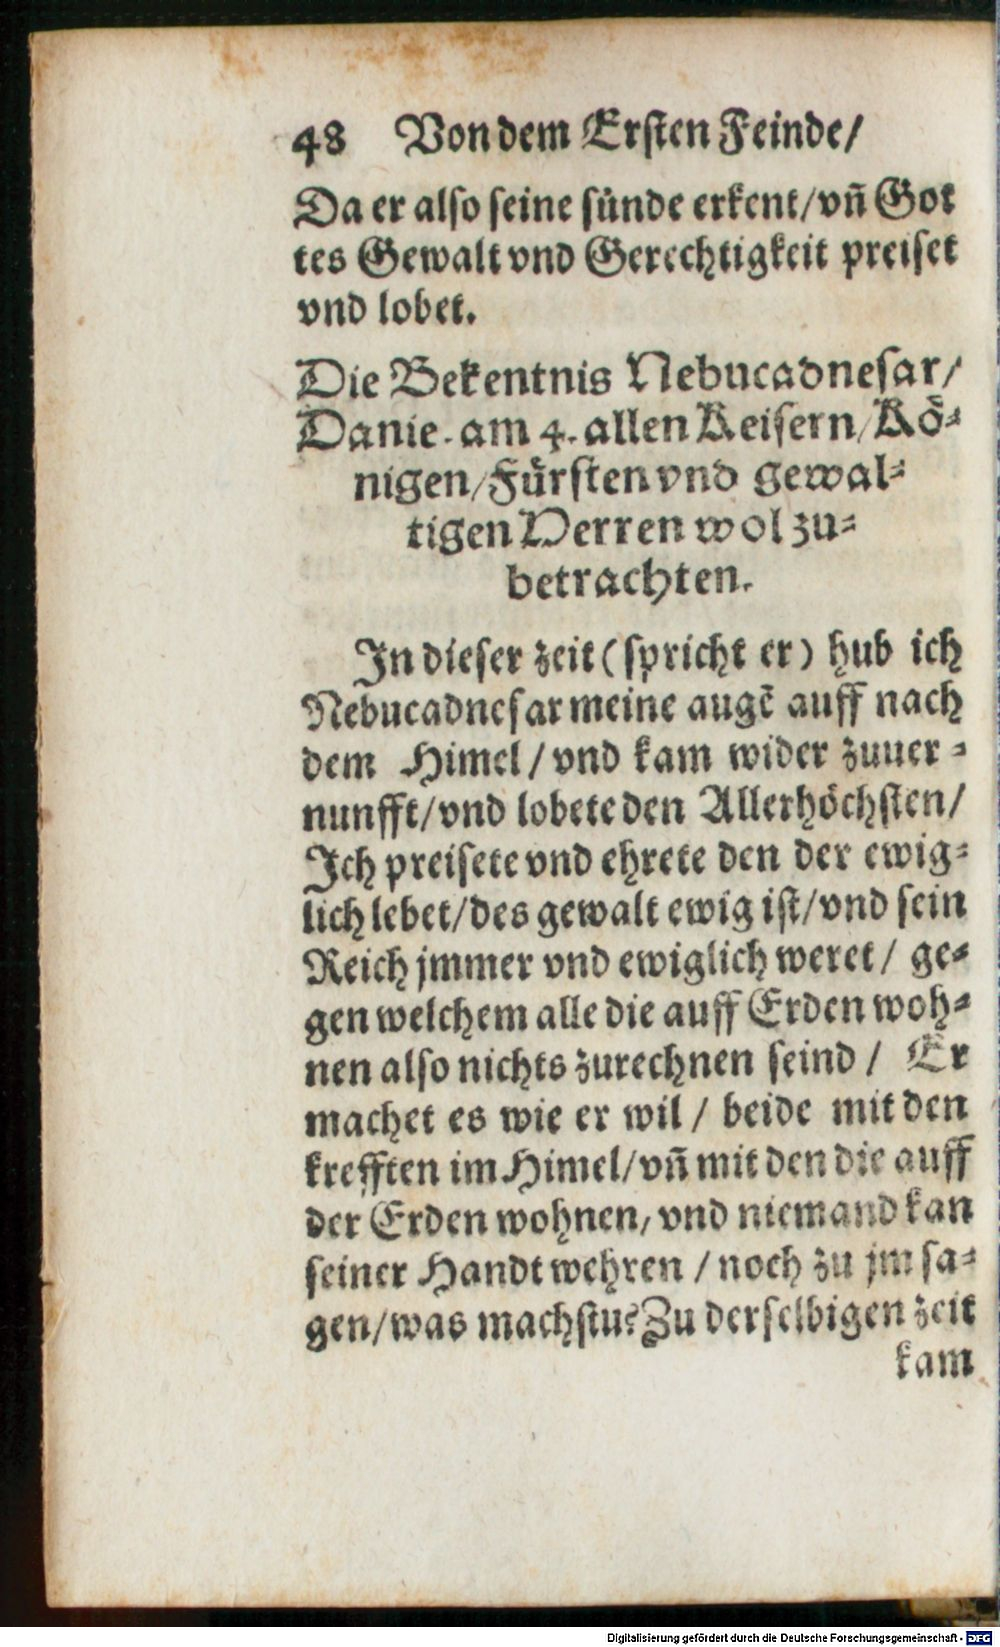 48 Von dem Ersten Feinde/
Da er also seine sünde erkent/vñ Got
tes Gewalt vnd Gerechtigkeit preiset
vnd lobet.
Die Bekentnis Nebucadnesar/
Danie. am 4. allen Keisern/Kö⸗
nigen/Fürsten vnd gewal⸗
tigen Herren wol zu⸗
betrachten.
In dieser zeit (spricht er) hub ich
Nebucadnesar meine augẽ auff nach
dem Himel / vnd kam wider zuuer⸗
nunfft/vnd lobete den Allerhöchsten/
Ich preisete vnd ehrete den der ewig⸗
lich lebet/des gewalt ewig ist/vnd sein
Reich jmmer vnd ewiglich weret / ge⸗
gen welchem alle die auff Erden woh⸗
nen also nichts zurechnen seind / Er
machet es wie er wil / beide mit den
krefften im Himel/vñ mit den die auff
der Erden wohnen, vnd niemand kan
seiner Handt wehren / noch zu jm sa⸗
gen/was machstu? Zu derselbigen zeit
kam
Digitalisierung gefördert durch die Deutsche Forschungsgemeinschaft - DFG